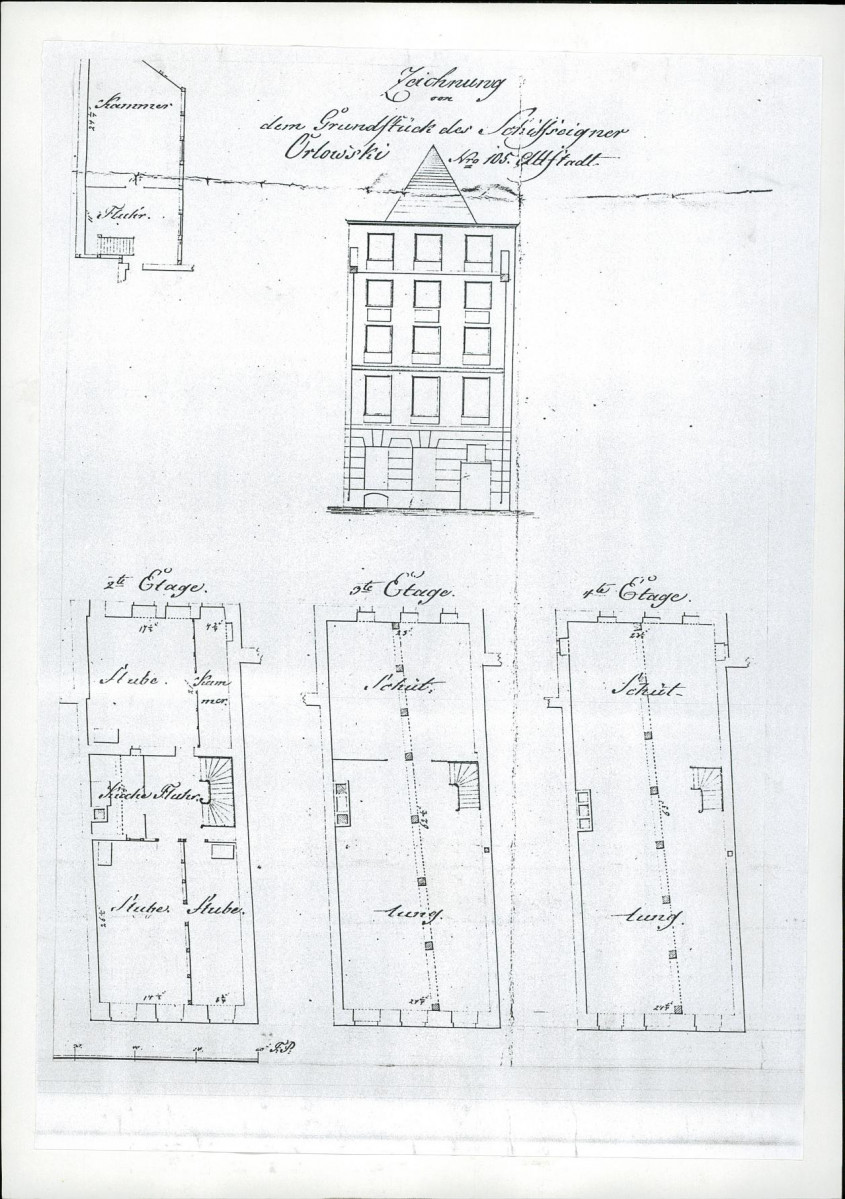 Zeichnung
von
dem Grundstück des Schiffseigner
Orlowski Nro 105. Altstadt.
Kammer
Fluhr.
2te Etage.
3te Etage.
4te Etage.
Stube.
Kam
mer.
Küche Fluhr.
Stube.
Stube.
Schüt-
tung.
Schüt-
tung.